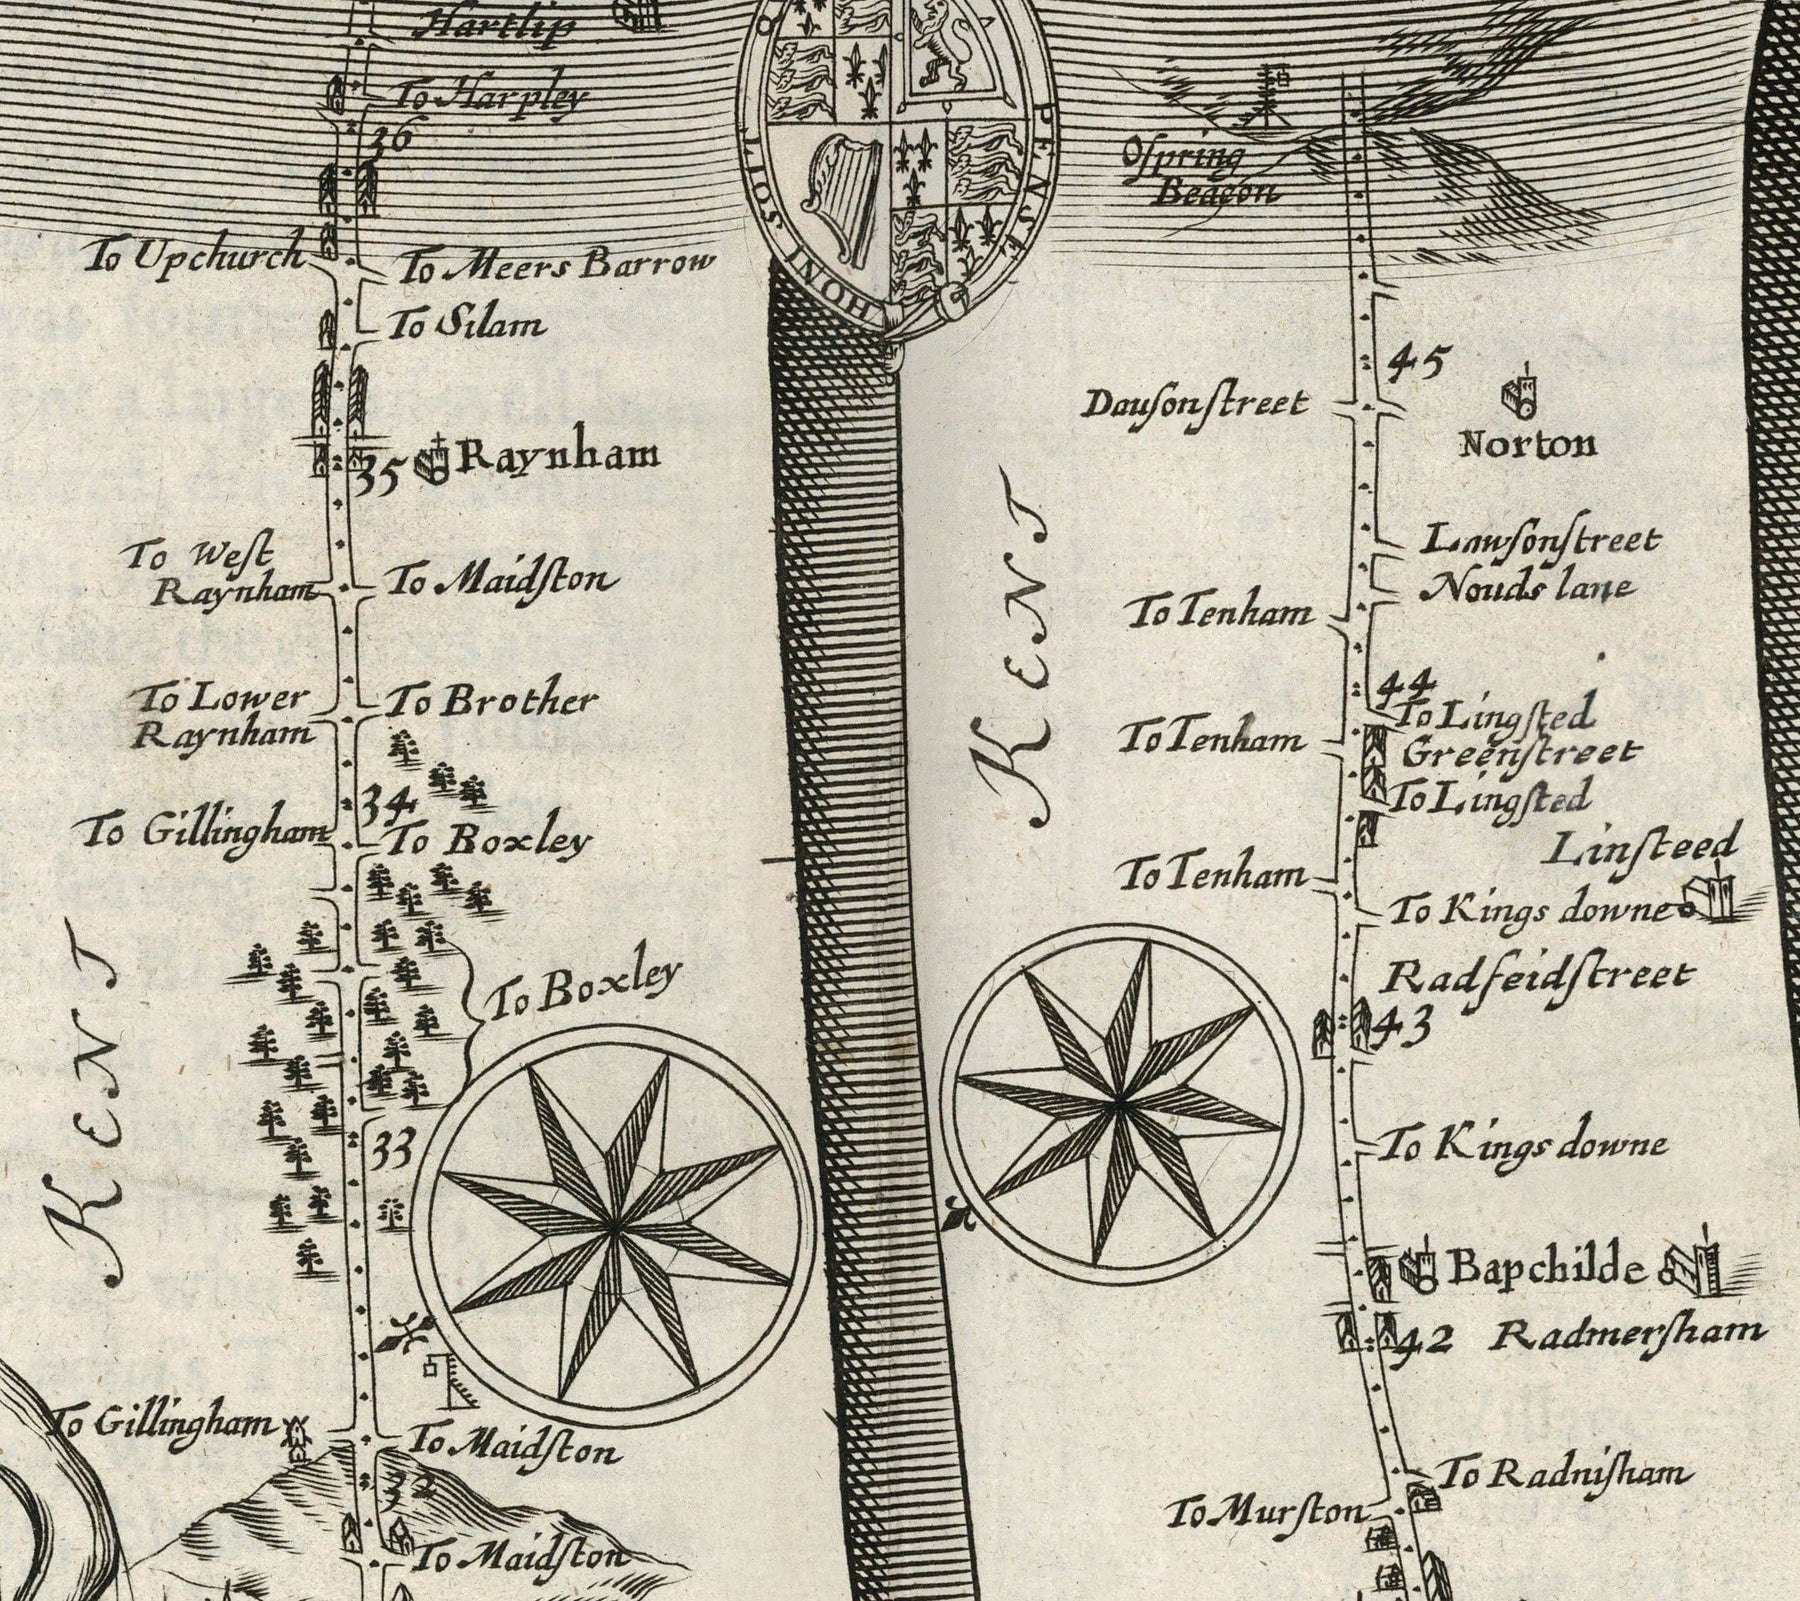 Hartlip
To Harpley
36
To Upchurch
To Meers Barrow
To Silam
35
Raynham
To Weſt
Raynham
To Maidſton
To Lower
Raynham
To Brother
34
To Gillingham
To Boxley
To Boxley
KENT
33
To Gillingham
To Maidſton
32
To Maidſton
HONI SOIT Q
PENSE
Oſpring
Beacon
45
Dauſonſtreet
Norton
KENT
Lawſonſtreet
Nouds lane
To Tenham
44
To Lingſted
To Tenham
Greenſtreet
To Lingſted
Linſteed
To Tenham
To Kings downe
Radfeidſtreet
43
To Kings downe
Bapchilde
42
Radmerſham
To Radniſham
To Murſton